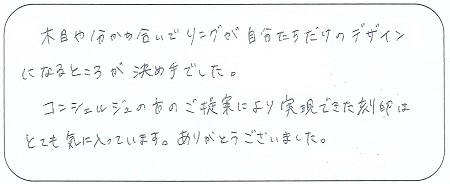 木目や分かち合いでリングが自分たちだけのデザイン
になるところが決め手でした。
コンシェルジュの方のご提案により実現できた刻印は
とても気に入っています。ありがとうございました。